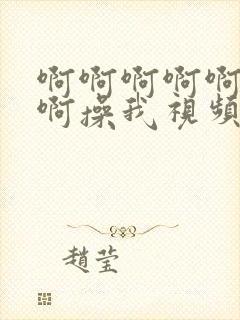 啊啊啊啊啊
啊操我視頻
趙莹